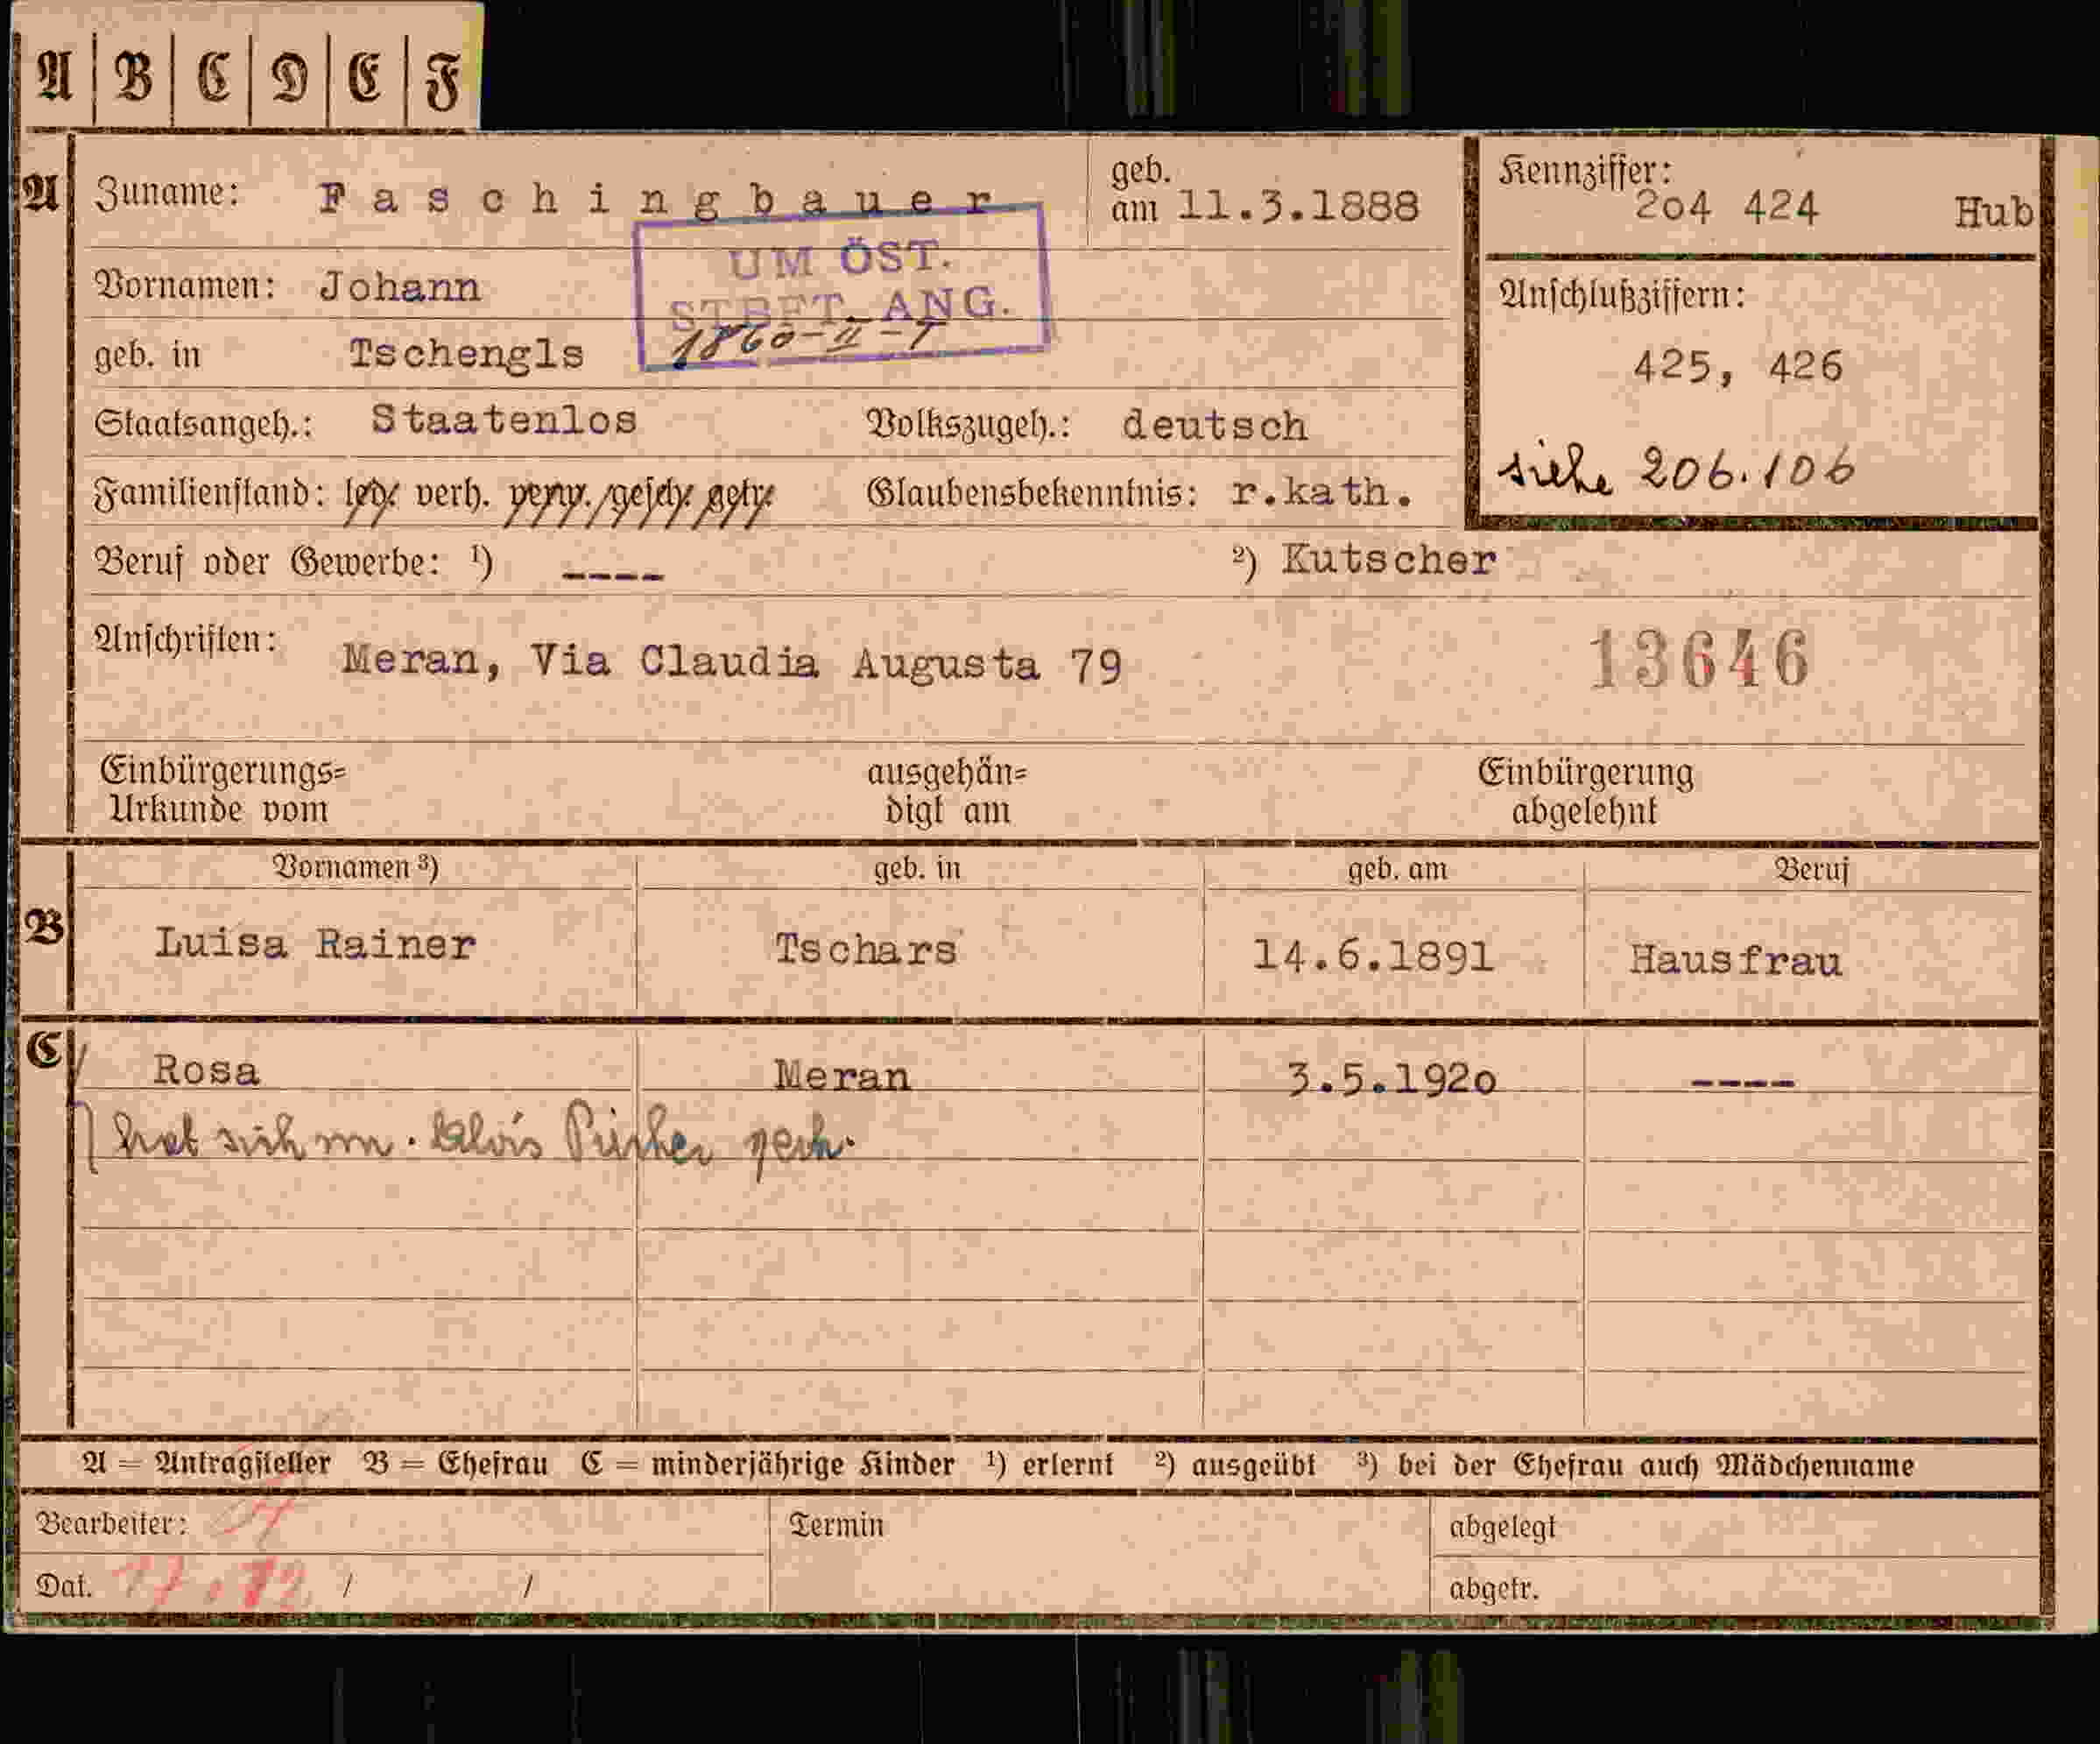 A B C D E F
A Zuname: Faschingbauer geb. am 11.3.1888
Kennziffer: 2o4 424 Hub
UM ÖST.
STBFT. ANG.
1860-II-
Vornamen: Johann
Anschlußziffern:
geb. in Tschengls
425, 426
Staatsangeh.: Staatenlos Volkszugeh.: deutsch
siehe 206.106
Familienstand: led. verh. verw. gesch. getr. Glaubensbekenntnis: r.kath.
Beruf oder Gewerbe: ¹) ---- ²) Kutscher
Anschriften: Meran, Via Claudia Augusta 79
13646
Einbürgerungs= Urkunde vom
ausgehän= digt am
Einbürgerung abgelehnt
Vornamen ³) geb. in geb. am Beruf
B Luisa Rainer Tschars 14.6.1891 Hausfrau
C Rosa Meran 3.5.192o ----
hat sich m. Alois
A = Antragsteller B = Ehefrau C = minderjährige Kinder ¹) erlernt ²) ausgeübt ³) bei der Ehefrau auch Mädchenname
Bearbeiter: Termin abgelegt
Dat. / / abgetr.